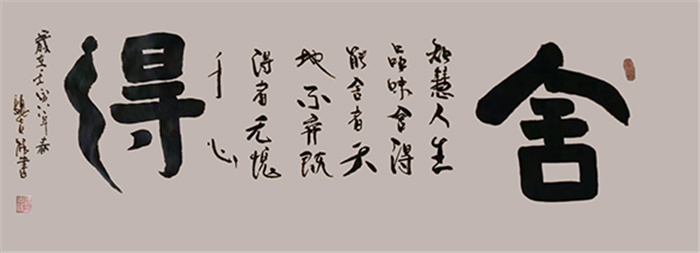 舍
智慧人生
品味舍得
能舍者天
地不弃既
得者无愧
于心
得
岁在壬寅年春
书